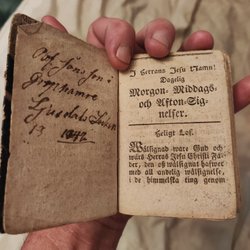 Olof Jönsson i
Grop hamre
Ljusdals Socken
13 1842
I HErrans JEsu Namn!
Dagelig
Morgon- Middags-
och Afton-Sig-
nelser.
Heligt Lof.
Wälsignad ware Gud och
wårs HErras JEsu Christi Fa-
der, den oß wälsignat hafwer
med all andelig wälsignelse,
i de himmelska ting genom